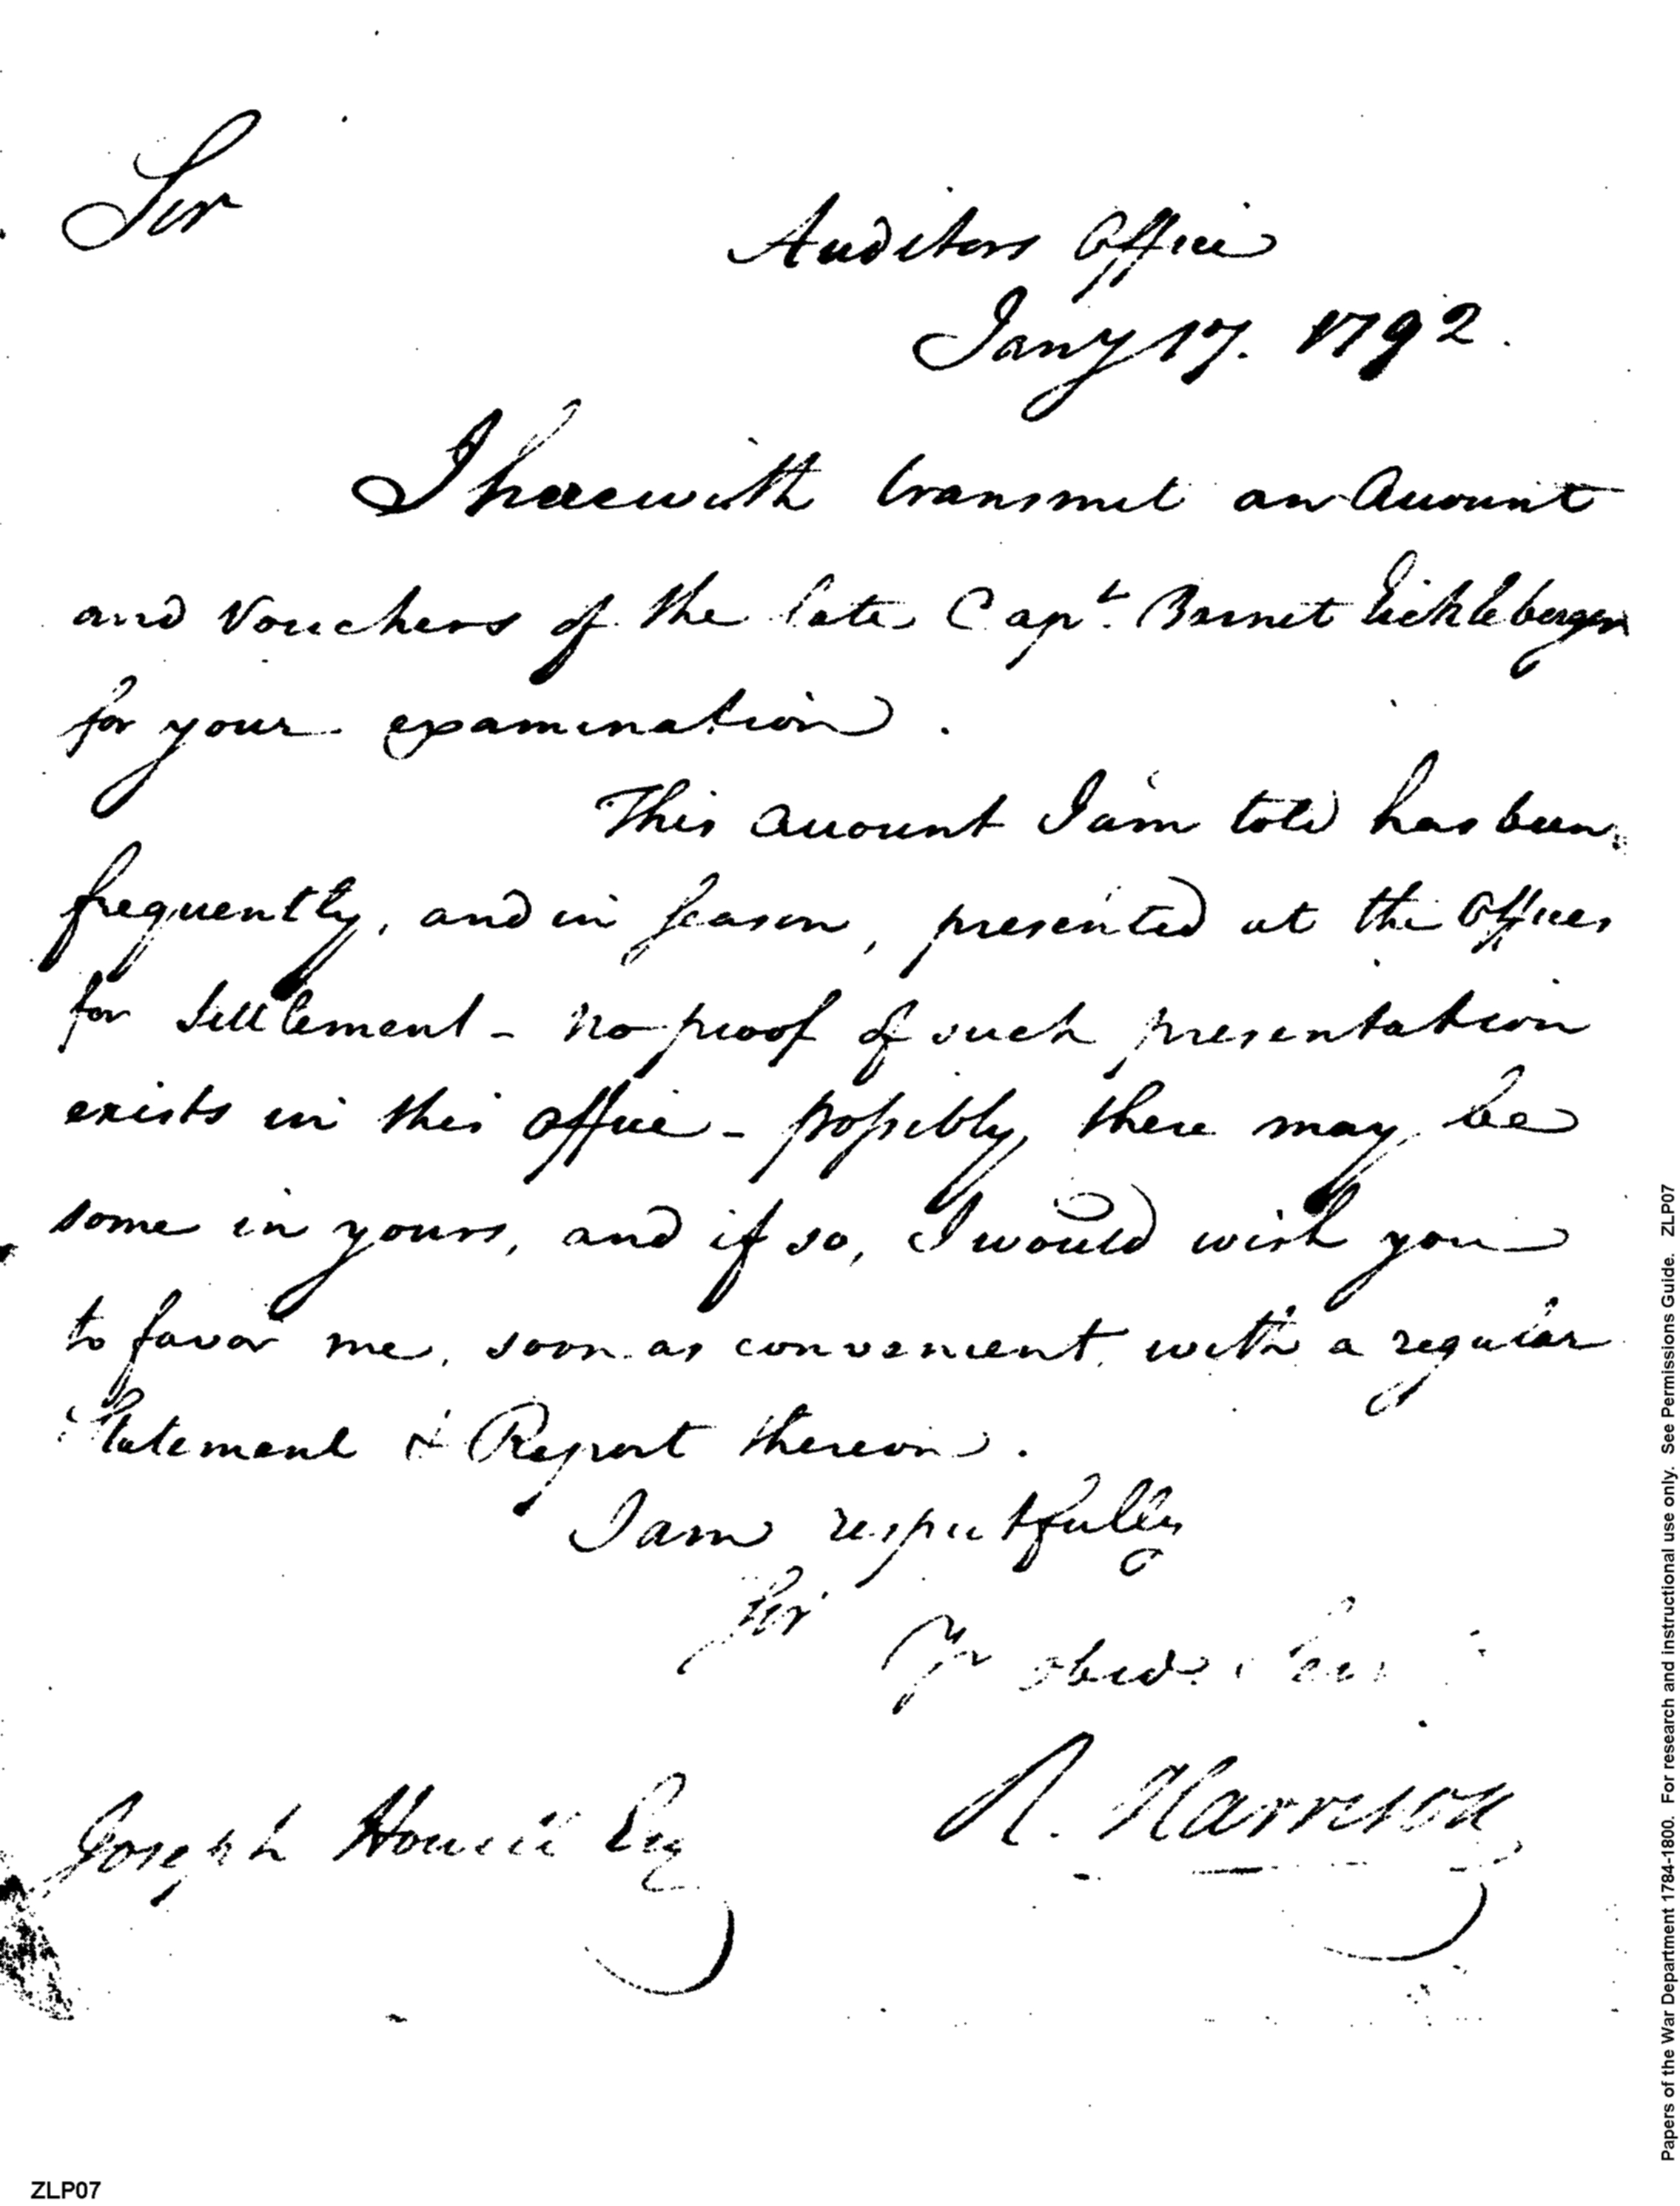 Sir
Auditors Office
Jany 17. 1792.
I herewith transmit an Account
and Vouchers of the late Capt. Barnet Eickleberger
for your examination.
This account I am told has been
frequently, and in season, presented at the Offices
for Settlement - no proof of such presentation
exists in this office - possibly, there may be
some in yours, and if so, I would wish you
to favor me, soon as convenient, with a regular
Statement & Report thereon.
I am respectfully
Sir
Yr obed.
R. Harrison
Joseph Howell Esq
Papers of the War Department 1784-1800. For research and instructional use only. See Permissions Guide. ZLP07
ZLP07